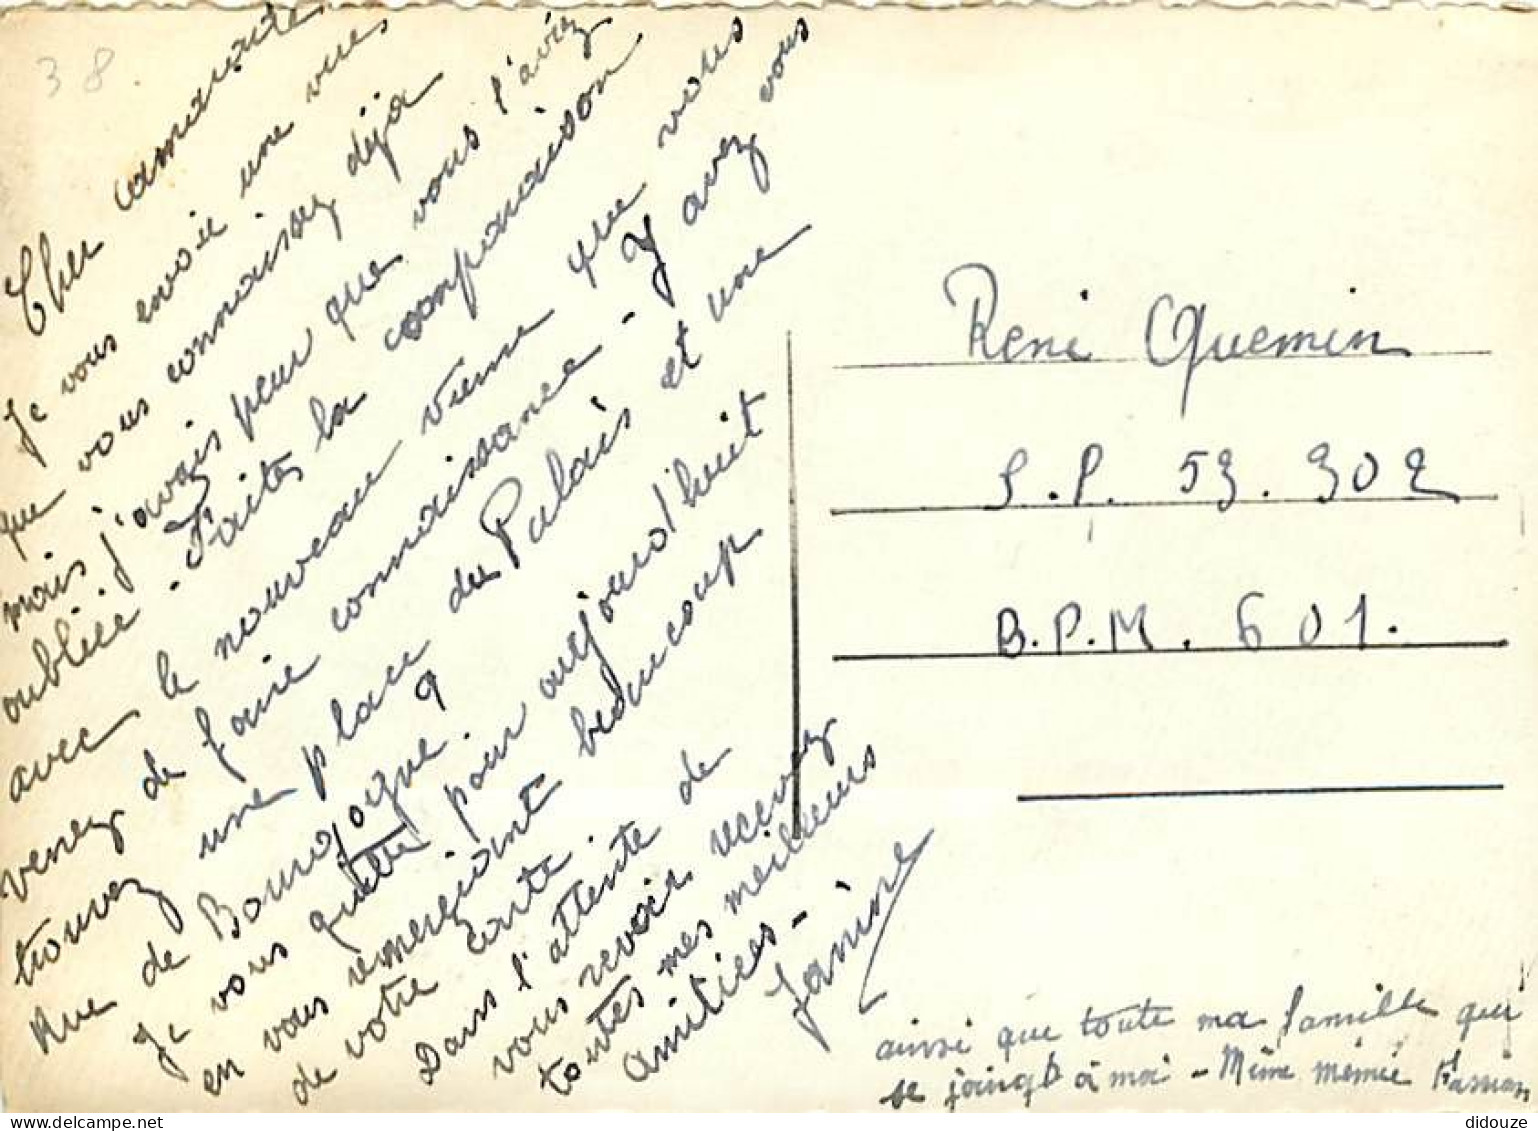 38.
Cher camarade
Je vous envoie une vue
que vous connaisez déja
mais j'avais peur que vous l'aviez
oubliée - Faites la comparaison
avec le nouveau Vienne que vous
venez de faire connaissance - y avez vous
trouvez une place du Palais et une
Rue de Bourgogne ?
Je vous quitte pour aujourd'huit
en vous remerciant beaucoup
de votre carte.
Dans l'attente de
vous revoir, recevez
toutes mes meilleurs
amitiées -
Janine
ainsi que toute ma famille qui
se joingt à moi - Même mémée
René Quemin
S.P. 53.302
B.P.M. 601.
didouze